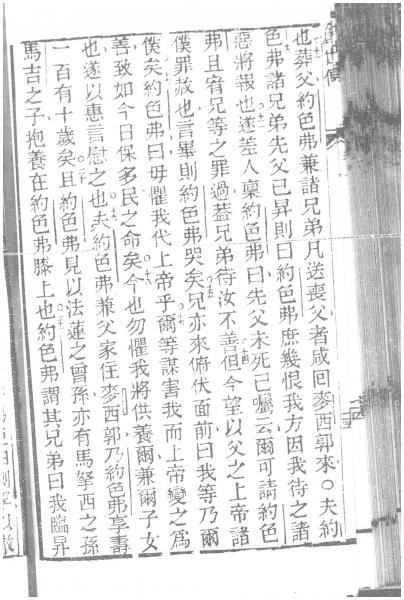 也葬父約色弗兼諸兄弟凡送喪父者咸回麥西郭來○夫約
色弗諸兄弟先父已昇則曰約色弗庶幾恨我方因我待之諸
惡將報也遂差人稟約色弗曰先父未死已囑云爾可請約色
弗且宥兄等之罪過蓋兄弟待汝不善但今望以父之上帝諸
僕罪赦也言畢則約色弗哭矣兄亦來俯伏面前曰我等乃爾
僕矣約色弗曰毋懼我代上帝乎爾等謀害我而上帝變之為
善致如今日保多民之命矣今也勿懼我將供養爾兼爾子女
也遂以惠言慰之也夫約色弗兼父家住麥西郭乃約色弗享壽
一百有十歲矣且約色弗見以法蓮之曾孫亦有馬拏西之孫
馬吉之子抱養在約色弗膝上也約色弗謂其兄弟曰我臨昇